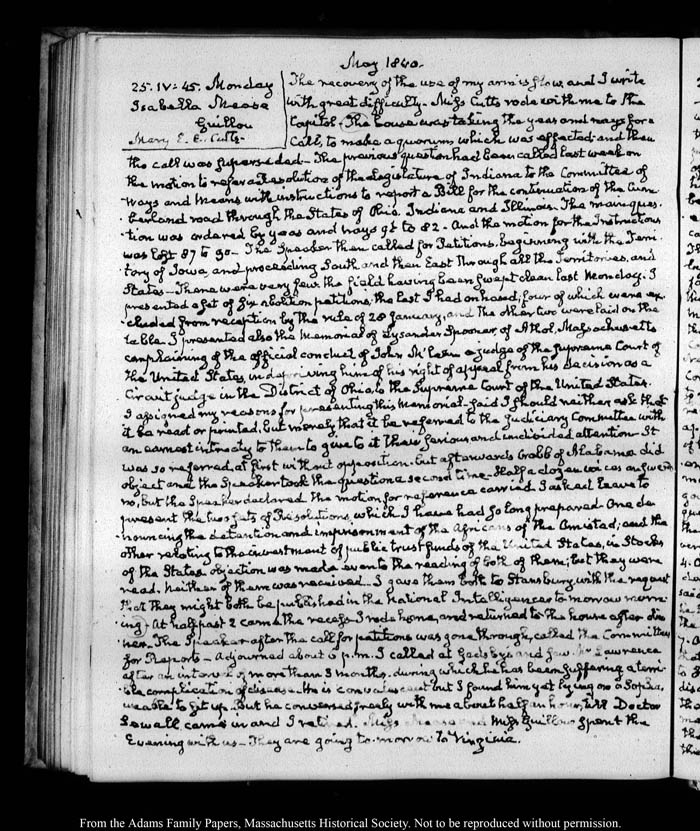 May 1840.
25. IV:45. Monday
Isabella Mease
Guillou
Mary E. E. Cutts.
The recovery of the use of my arm is slow, and I write
with great difficulty. Miss Cutts rode with me to the
Capitol. The house was taking the yeas and nays for a
Call, to make a quorum which was effected and then
the call was superseded. The previous question had been called last week on
the motion to refer a Resolution of the Legislature of Indiana to the Committee of
Ways and Means with instructions to report a Bill for the continuation of the Cum-
berland road through the States of Ohio. Indiana and Illinois. The main ques-
tion was ordered by yeas and nays 95 to 82. And the motion for the Instructions
was lost 87 to 90. The Speaker then called for Petitions, beginning with the Terri-
tory of Iowa, and proceeding South and then East through all the Territories, and
States. There were very few the field having been swept clean last Monday. I
presented a set of six abolition petitions, the last I had on hand, four of which were ex-
cluded from reception by the rule of 28 January, and the other two were laid on the
table. I presented also the Memorial of Lysander Spooner, of Athol, Massachusetts
complaining of the official conduct of John McLean a judge of the Supreme Court of
the United States, in depriving him of his right of appeal from his decision as a
Circuit judge in the District of Ohio to the Supreme Court of the United States.
I assigned my reasons for presenting this Memorial. Said I should neither ask that
it be read or printed, but merely that it be referred to the Judiciary Committee with
an earnest intreaty to them to give to it their serious and undivided attention. It
was so referred, at first without opposition. but afterwards Crabb of Alabama did
object and the Speaker took the question a second time. Half a dozen voices answered
no, but the Speaker declared the motion for reference carried. I asked leave to
present the two sets of Resolutions, which I have had so long prepared. One de-
nouncing the detention and imprisonment of the Africans of the Amistad, and the
other relating to the investment of public trust funds of the United States, in Stocks
of the States. objection was made even to the reading of both of them; but they were
read. Neither of them was received. I gave them both to Stansbury with the request
that they might both be published in the National Intelligencer to-morrow morn-
ing. At half past 2 came the recess. I rode home, and returned to the house after din-
ner. The Speaker after the call for petitions was gone through, called the Committees
for Reports. Adjourned about 6 p.m. I called at Gadsby's and saw Mr Lawrence
after an interval of more than 3 months. during which he has been suffering a terri-
ble complication of disease. He is convalescent but I found him yet lying on a Sopha,
unable to sit up. But he conversed freely with me about half an hour, till Doctor
Sewall came in and I retired. Miss Mease and Miss Guillou spent the
Evening with us. They are going to-morrow to Virginia.
From the Adams Family Papers, Massachusetts Historical Society. Not to be reproduced without permission.